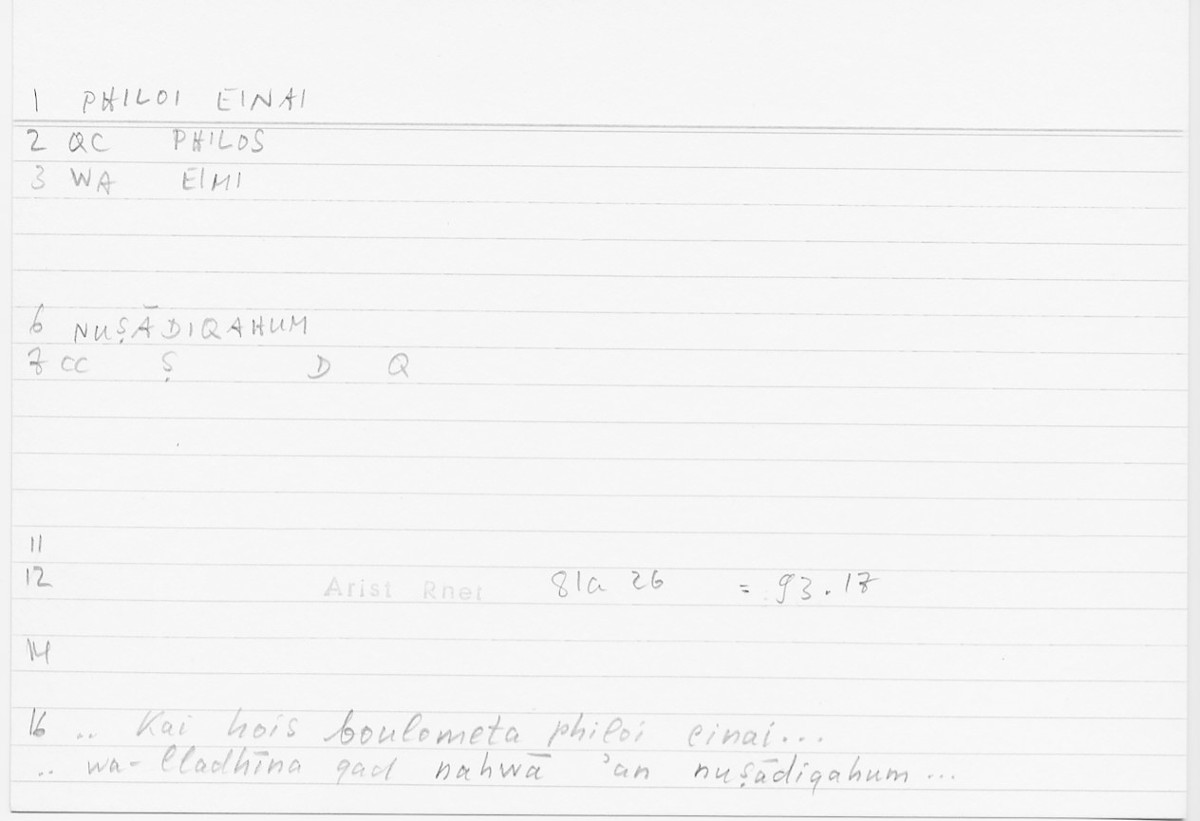 1 PHILOI EINAI
2 QC PHILOS
3 WA EIMI
6 NUṢĀDIQAHUM
7 CC Ṣ D Q
11
12 Arist Rhet 81a 26 = 93.17
14
16 .. Kai hois boulometa philoi einai...
.. wa-lladhīna qad nahwā ʾan nuṣādiqahum...